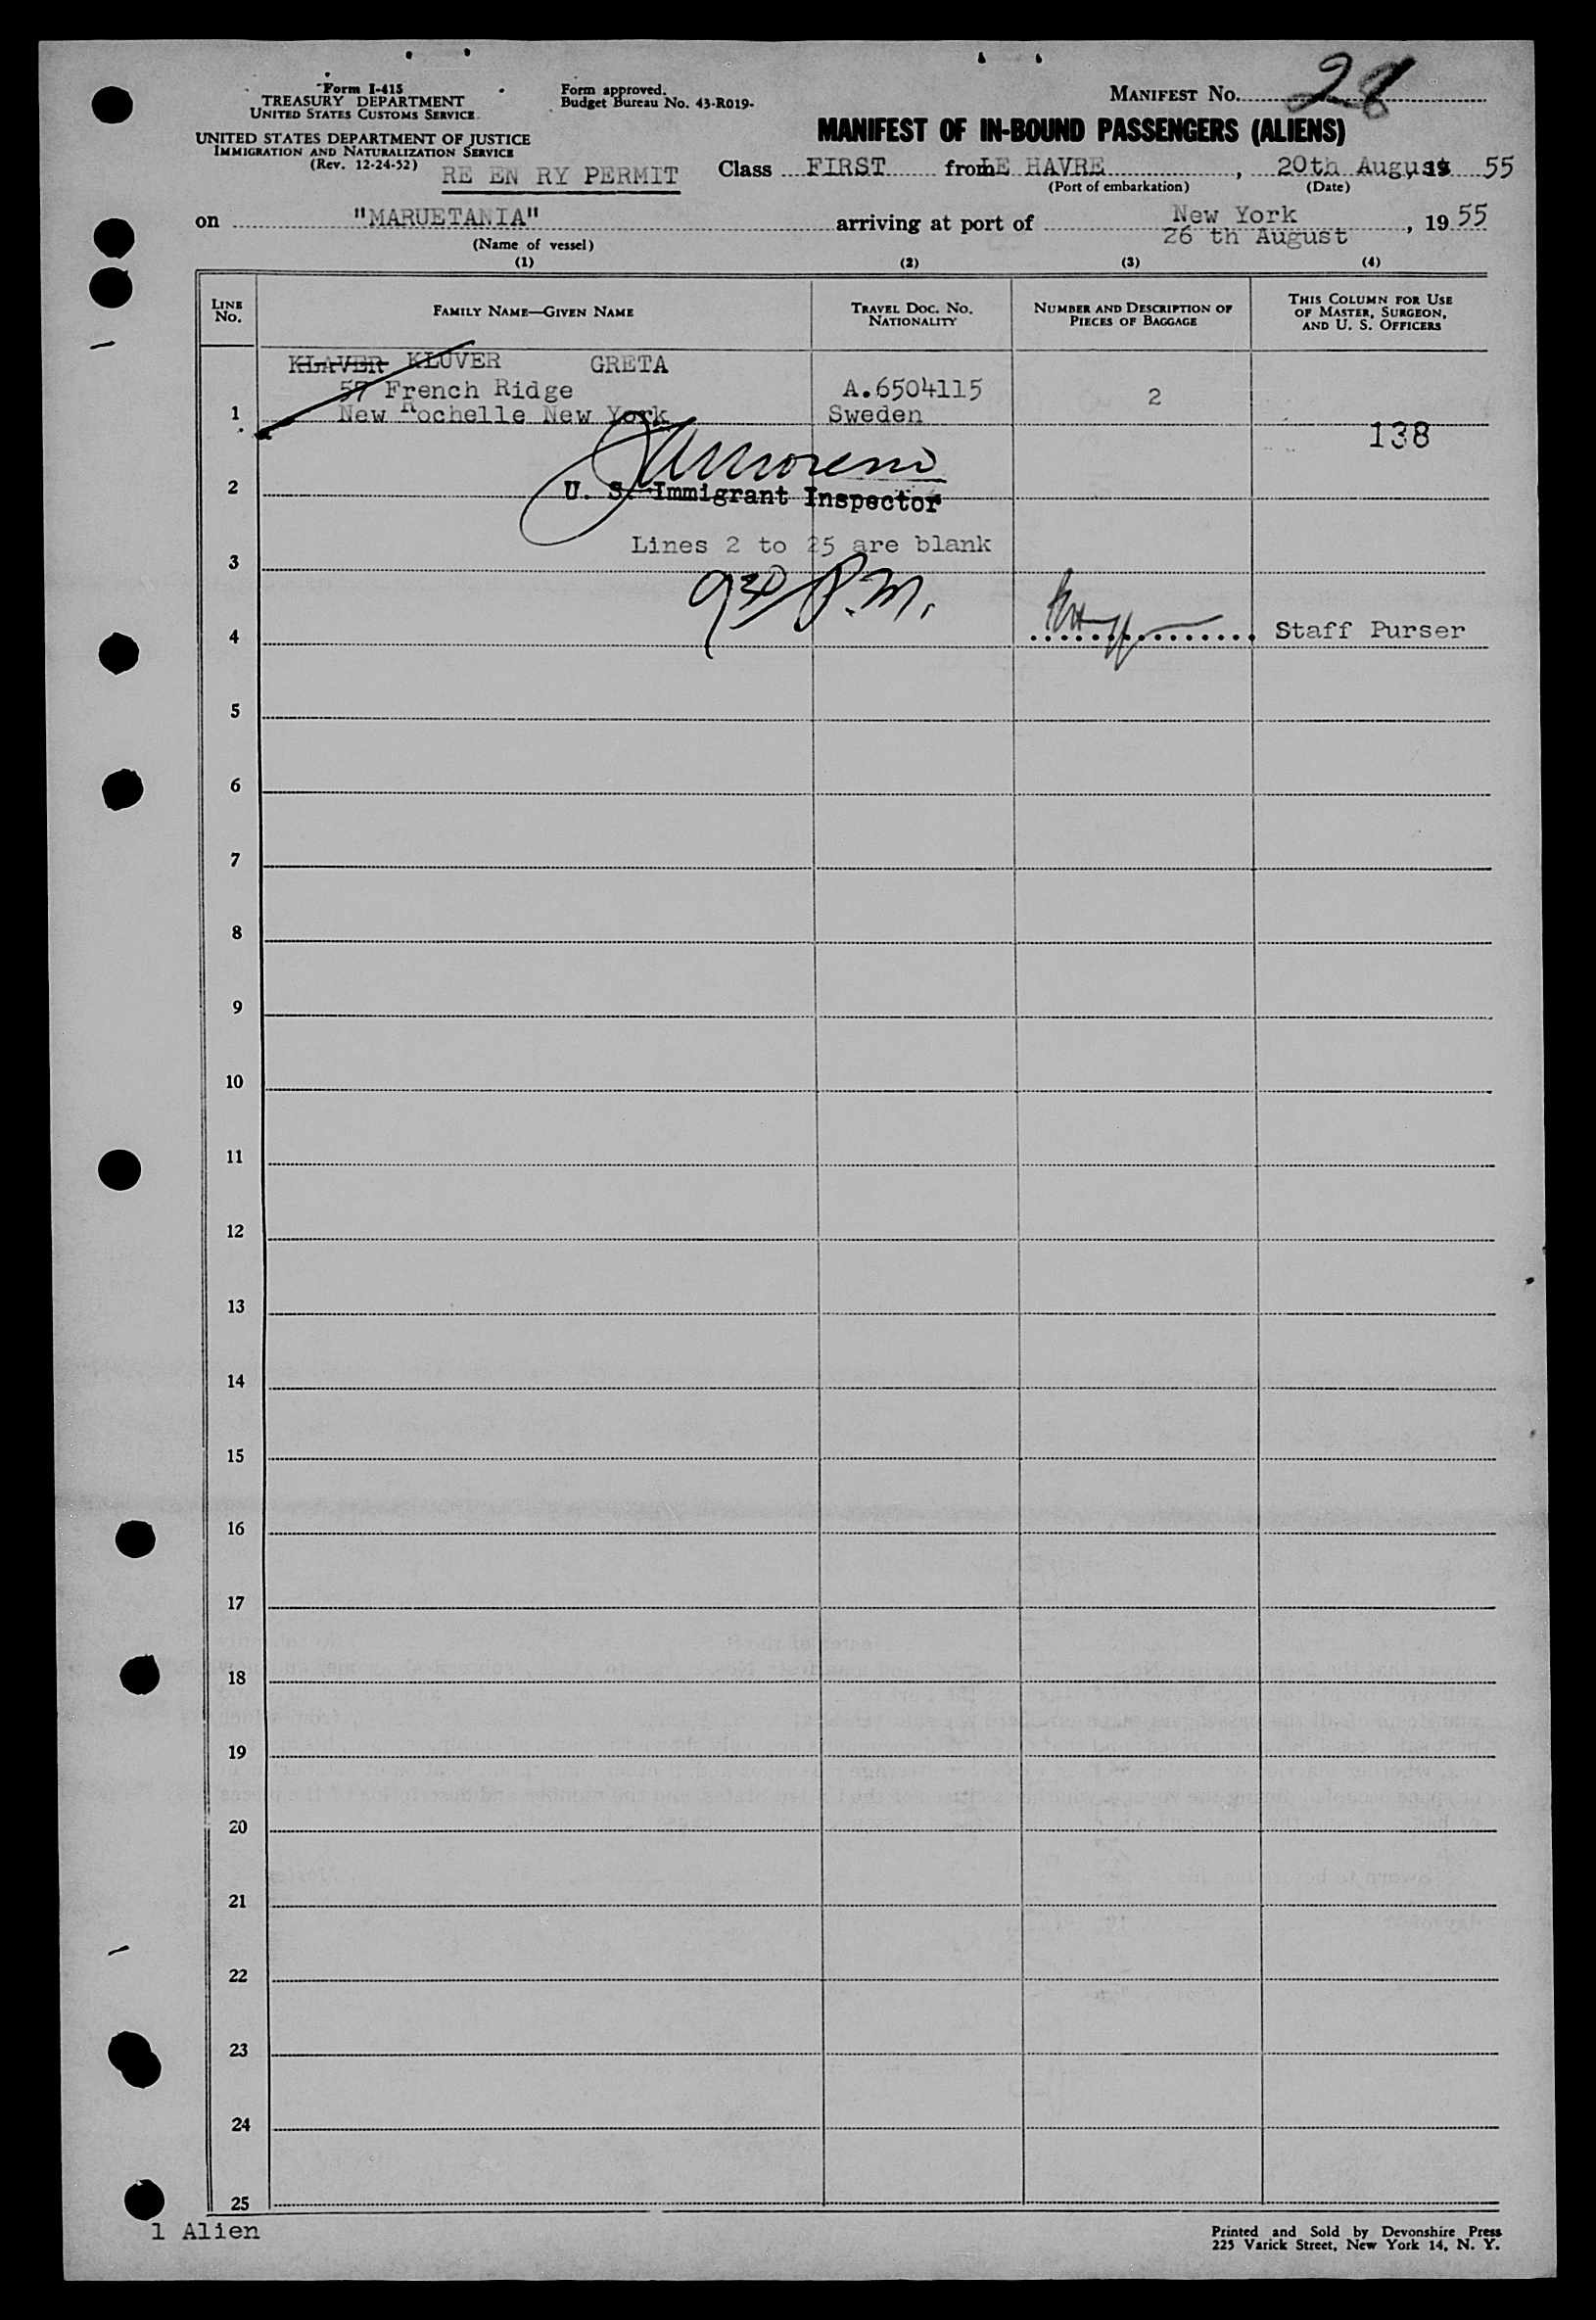 Form I-415
TREASURY DEPARTMENT
UNITED STATES CUSTOMS SERVICE
UNITED STATES DEPARTMENT OF JUSTICE
IMMIGRATION AND NATURALIZATION SERVICE
(Rev. 12-24-52)
RE EN RY PERMIT
Form approved.
Budget Bureau No. 43-R019-
MANIFEST No. 28
MANIFEST OF IN-BOUND PASSENGERS (ALIENS)
Class FIRST from LE HAVRE, 20th August, 19 55
(Port of embarkation) (Date)
on "MARUETANIA" arriving at port of New York, 19 55
26 th August
(Name of vessel)
(1) (2) (3) (4)
LINE NO.
FAMILY NAME—GIVEN NAME
TRAVEL DOC. NO.
NATIONALITY
NUMBER AND DESCRIPTION OF
PIECES OF BAGGAGE
THIS COLUMN FOR USE
OF MASTER, SURGEON,
AND U. S. OFFICERS
KLAVER KLUVER GRETA
57 French Ridge A.6504115 2
1 New Rochelle New York Sweden
138
2 U. S. Immigrant Inspector
Lines 2 to 25 are blank
3
930 P.M.
4 Staff Purser
5
6
7
8
9
10
11
12
13
14
15
16
17
18
19
20
21
22
23
24
25
1 Alien
Printed and Sold by Devonshire Press
225 Varick Street, New York 14, N. Y.